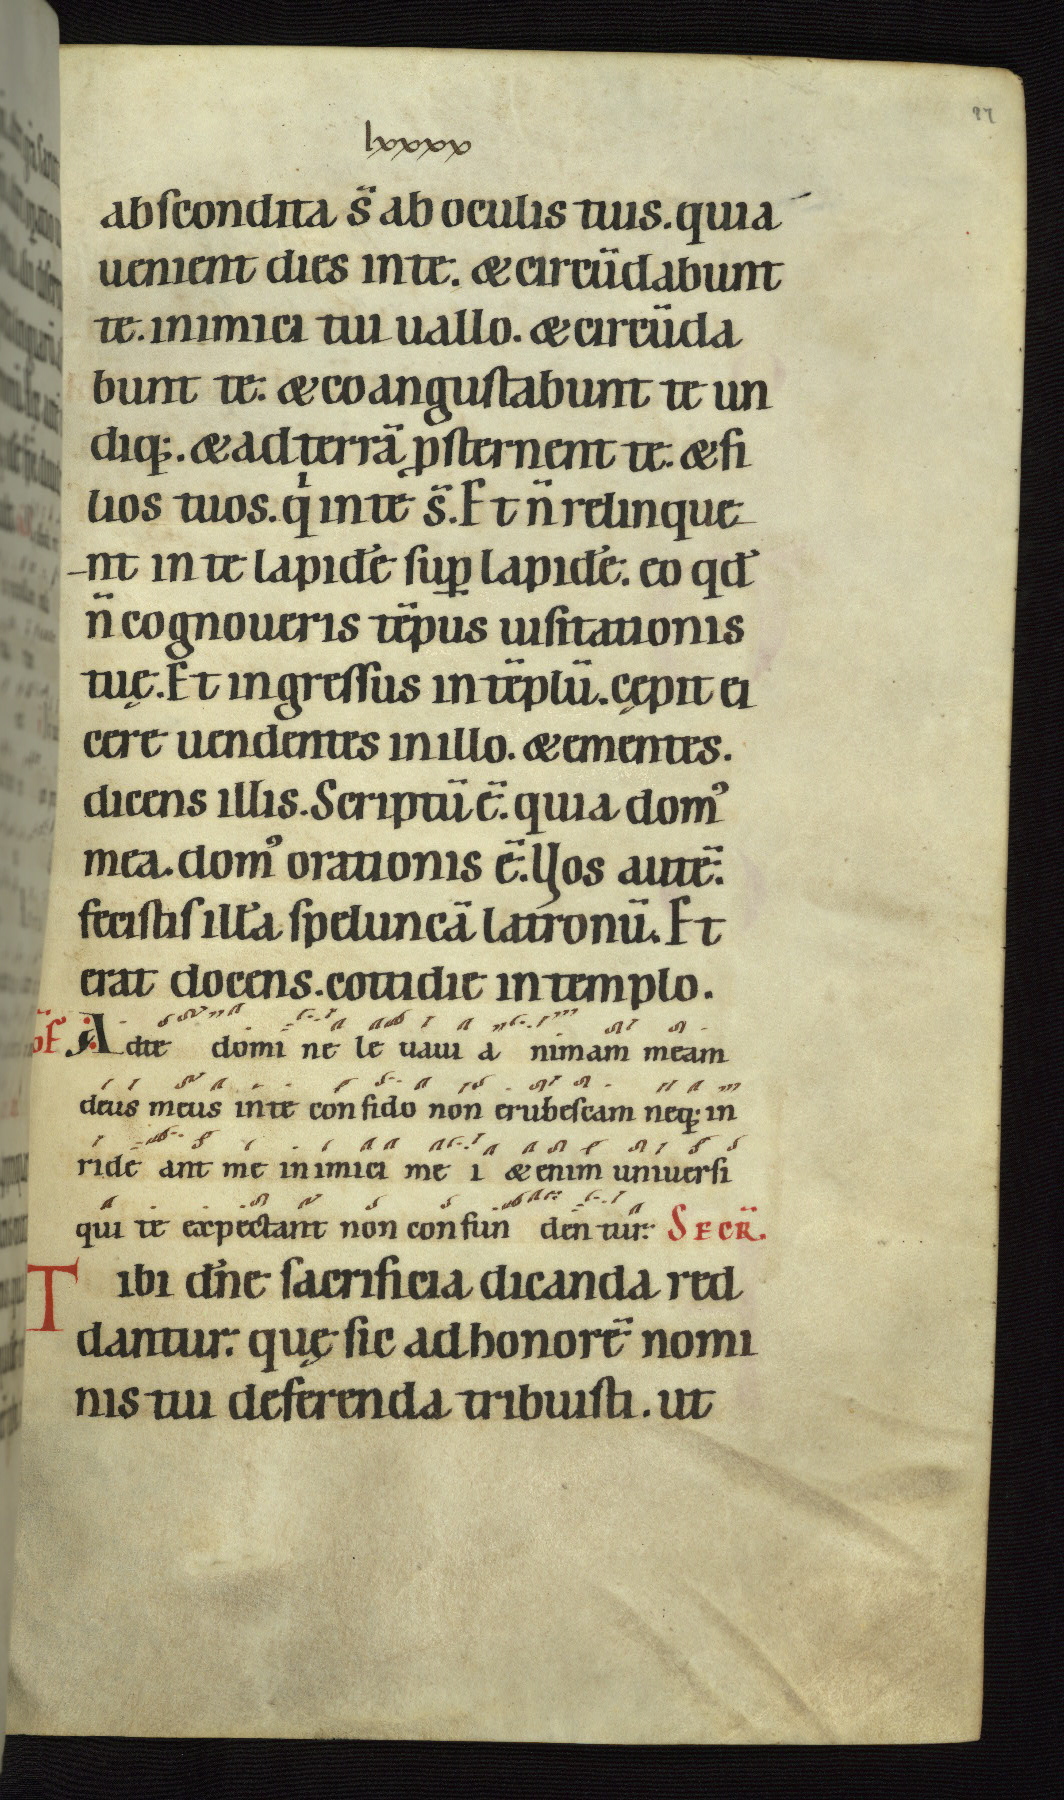 lxxxx
87
abscondita s̄ ab oculis tuis. quia
uenient dies in te. & circūdabunt
te. inimici tui uallo. & circūda
bunt te. & coangustabunt te un
diq;. & ad terrā ꝓsternent te. & fi
lios tuos. qͥ in te s̄. Et n̄ relinque
nt in te lapidē suꝑ lapidē. eo qđ
n̄ cognoueris tēpus uisitationis
tuę. Et ingressus in tēplū. cępit ei
cere uendentes in illo. & ementes.
dicens illis. Scriptū ē. quia dom᾿
mea. dom᾿ orationis ē. Vos autē.
fecistis illā speluncā latronū. Et
erat docens. cotidie in templo.
oF̄ Ad te domi ne le uaui a nimam meam
deus meus in te con fido non erubescam neq; in
ride ant me in imici me i & enim uniuersi
qui te expectant non con fun den tur. SECR̄.
Tibi dn̄e sacrificia dicanda red
dantur. quę sic ad honorē nomi
nis tui deferenda tribuisti. ut